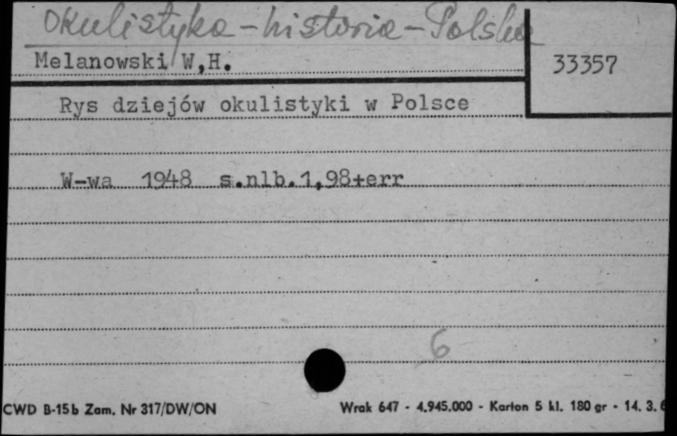 Okulistyka - historia - Polska
Melanowski W,H.
33357
Rys dziejów okulistyki w Polsce
W-wa 1948 s.nlb.1,98+err
6
CWD B-15b Zam. Nr 317/DW/ON
Wrak 647 - 4.945.000 - Karton 5 kl. 180 gr - 14. 3. 6